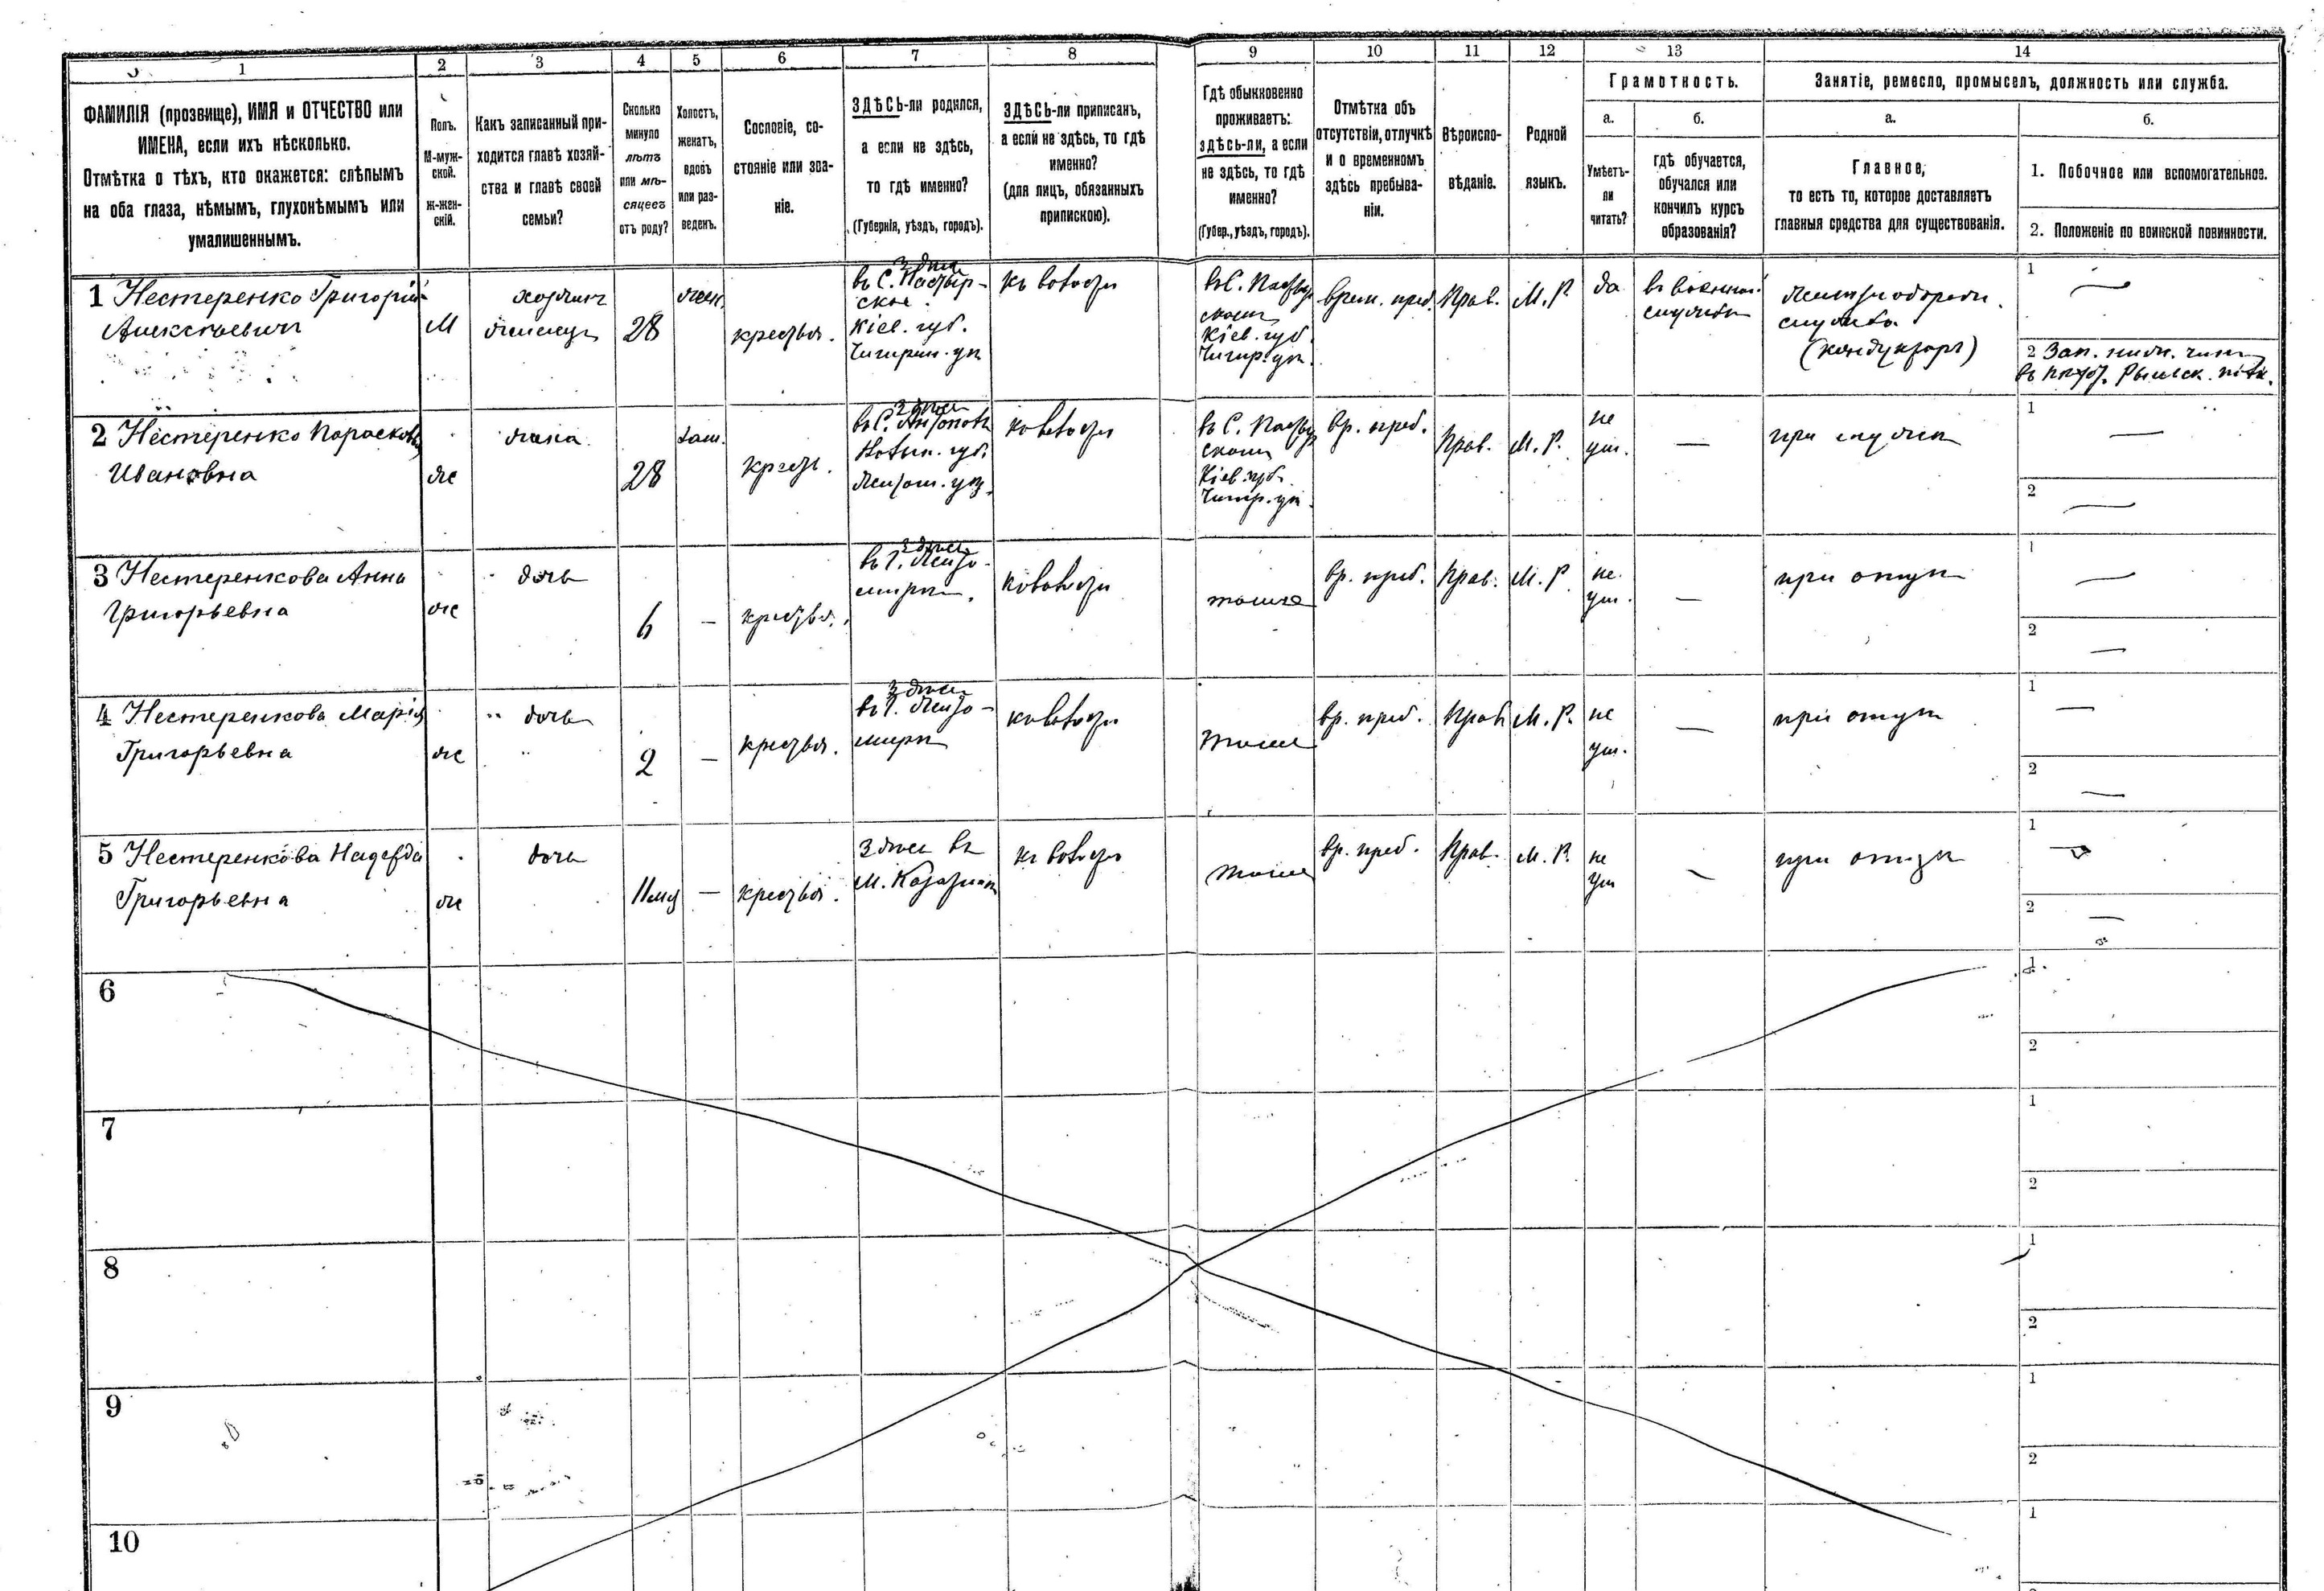 1 2 3 4 5 6 7 8 9 10 11 12 13 14
ФАМИЛІЯ (прозвище), ИМЯ и ОТЧЕСТВО или
ИМЕНА, если ихъ нѣсколько.
Отмѣтка о тѣхъ, кто окажется: слѣпымъ
на оба глаза, нѣмымъ, глухонѣмымъ или
умалишеннымъ.
Полъ.
М-муж-
ской.
ж-жен-
скій.
Какъ записанный при-
ходится главѣ хозяй-
ства и главѣ своей
семьи?
Сколько
минуло
лѣтъ
или мѣ-
сяцевъ
отъ роду?
Холостъ,
женатъ,
вдовъ
или раз-
веденъ.
Сословіе, со-
стояніе или зва-
ніе.
ЗДѢСЬ-ли родился,
а если не здѣсь,
то гдѣ именно?
(Губернія, уѣздъ, городъ).
ЗДѢСЬ-ли приписанъ,
а если не здѣсь, то гдѣ
именно?
(для лицъ, обязанныхъ
припискою).
Гдѣ обыкновенно
проживаетъ:
здѣсь-ли, а если
не здѣсь, то гдѣ
именно?
(Губер., уѣздъ, городъ).
Отмѣтка объ
отсутствіи, отлучкѣ
и о временномъ
здѣсь пребыва-
ніи.
Вѣроиспо-
вѣданіе.
Родной
языкъ.
Грамотность.
а.
Умѣетъ-
ли
читать?
б.
гдѣ обучается,
обучался или
кончилъ курсъ
образованія?
Занятіе, ремесло, промыселъ, должность или служба.
а.
Главное,
то есть то, которое доставляетъ
главныя средства для существованія.
б.
1. Побочное или вспомогательное.
2. Положеніе по воинской повинности.
1 Нестеренко Григорій
Алексѣевичъ
М
28
жен.
крестья.
въ С.
Кіев. губ.
Чигирин. уѣ
въ С.
Кіев. губ.
Чигир. уѣ.
врем. преб.
Прав.
М. Р.
да
въ военной
службѣ
служба
(кондукторъ)
1
2 Зап. нижн. чинъ
2 Нестеренко Парасковья
Ивановна
ж
жена
28
зам.
крест.
въ С.
въ С.
Кіев. губ.
Чигир. уѣ.
вр. преб.
Прав.
М. Р.
не
ум.
—
при мужѣ
1 —
2 —
3 Нестеренкова Анна
Григорьевна
ж
дочь
6
—
крестья.
въ Г. Жито-
мирѣ.
тоже
вр. преб.
Прав.
М. Р.
не
ум.
—
при отцѣ
1 —
2 —
4 Нестеренкова Марія
Григорьевна
ж
дочь
2
—
крестья.
въ Г. Жито-
мирѣ
тоже
вр. преб.
Прав.
М. Р.
не
ум.
—
при отцѣ
1 —
2 —
5 Нестеренкова Надежда
Григорьевна
ж
дочь
11 мѣс
—
крестья.
Здѣсь въ
М. Казатинѣ
тоже
вр. преб.
Прав.
М. Р.
не
ум
—
при отцѣ
1 —
2 —
6
1
2
7
1
2
8
1
2
9
1
2
10
1